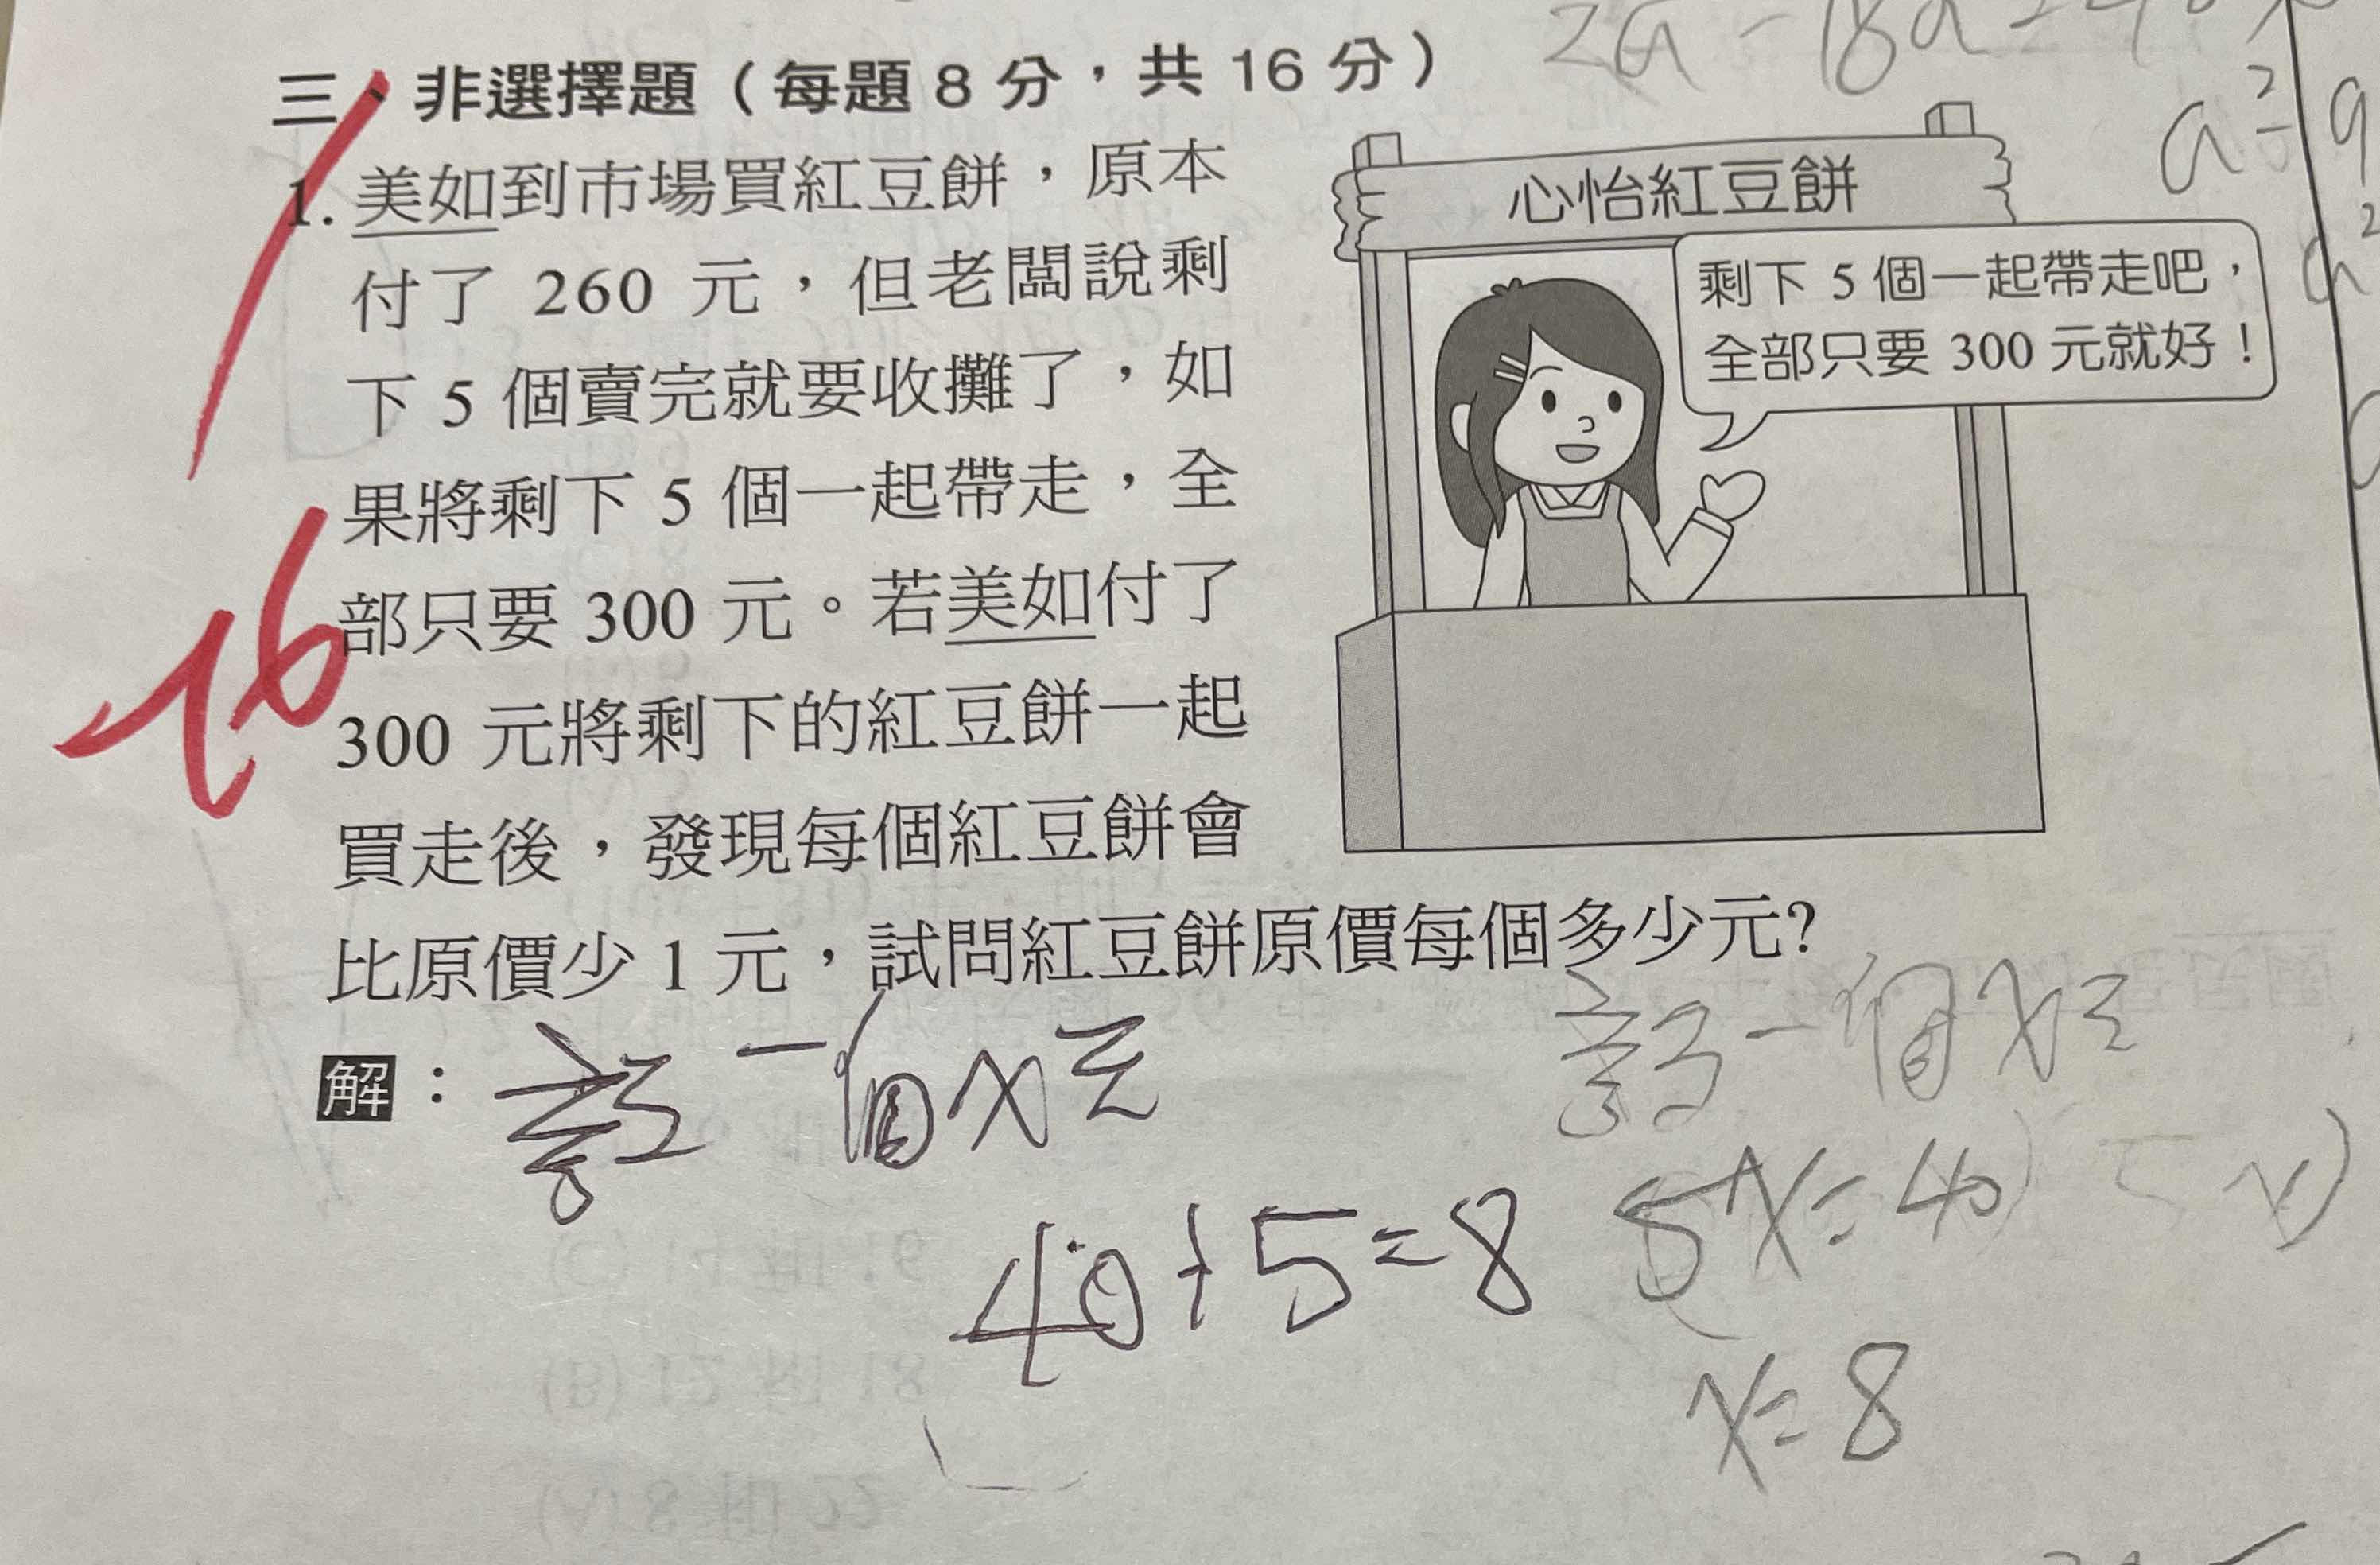 三、非選擇題（每題 8 分，共 16 分）
1. 美如到市場買紅豆餅，原本
付了 260 元，但老闆說剩
下 5 個賣完就要收攤了，如
果將剩下 5 個一起帶走，全
部只要 300 元。若美如付了
300 元將剩下的紅豆餅一起
買走後，發現每個紅豆餅會
比原價少 1 元，試問紅豆餅原價每個多少元？
心怡紅豆餅
剩下 5 個一起帶走吧，
全部只要 300 元就好！
-16
解：設一個x元
40÷5=8
設一個x元
5x=40
x=8